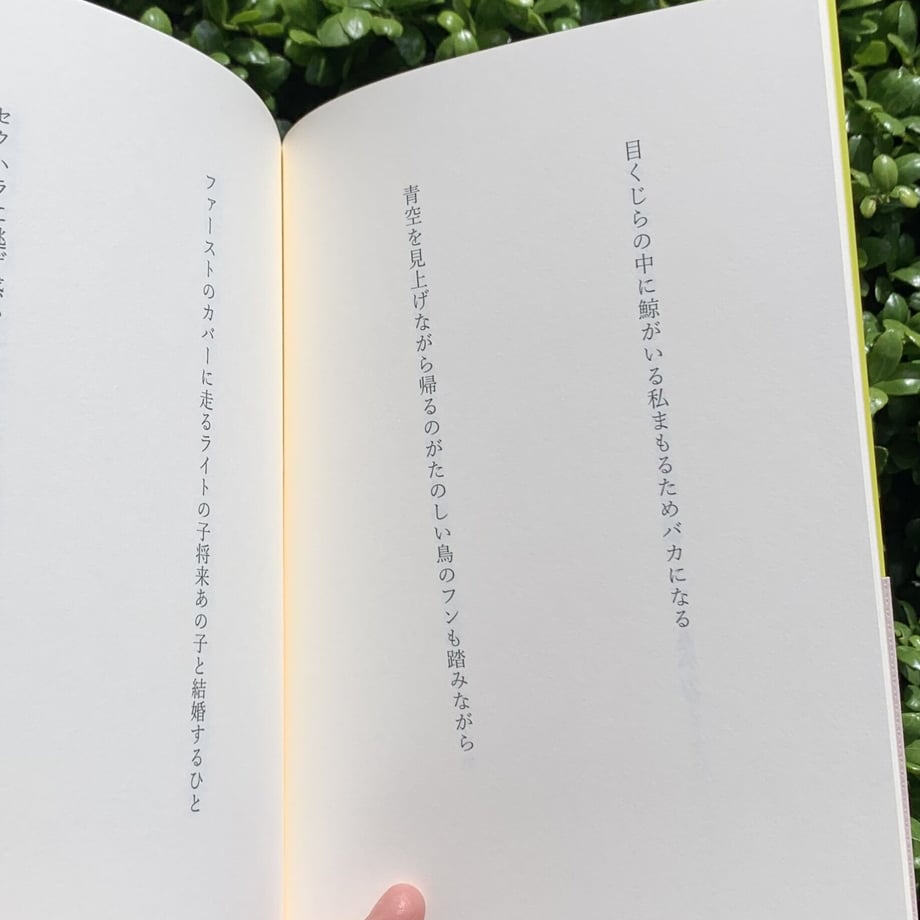 目くじらの中に鯨がいる私まもるためバカになる
青空を見上げながら帰るのがたのしい鳥のフンも踏みながら
ファーストのカバーに走るライトの子将来あの子と結婚するひと
セクハラに